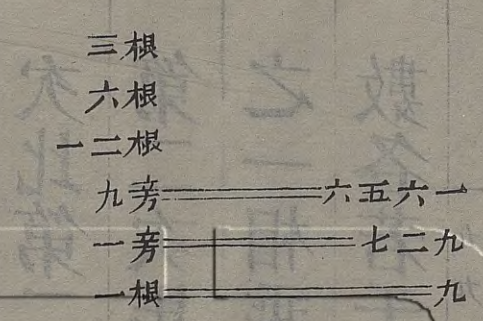 三根
六根
一二根
九𠫤══六五六一
一𠫤══七二九
一根══九